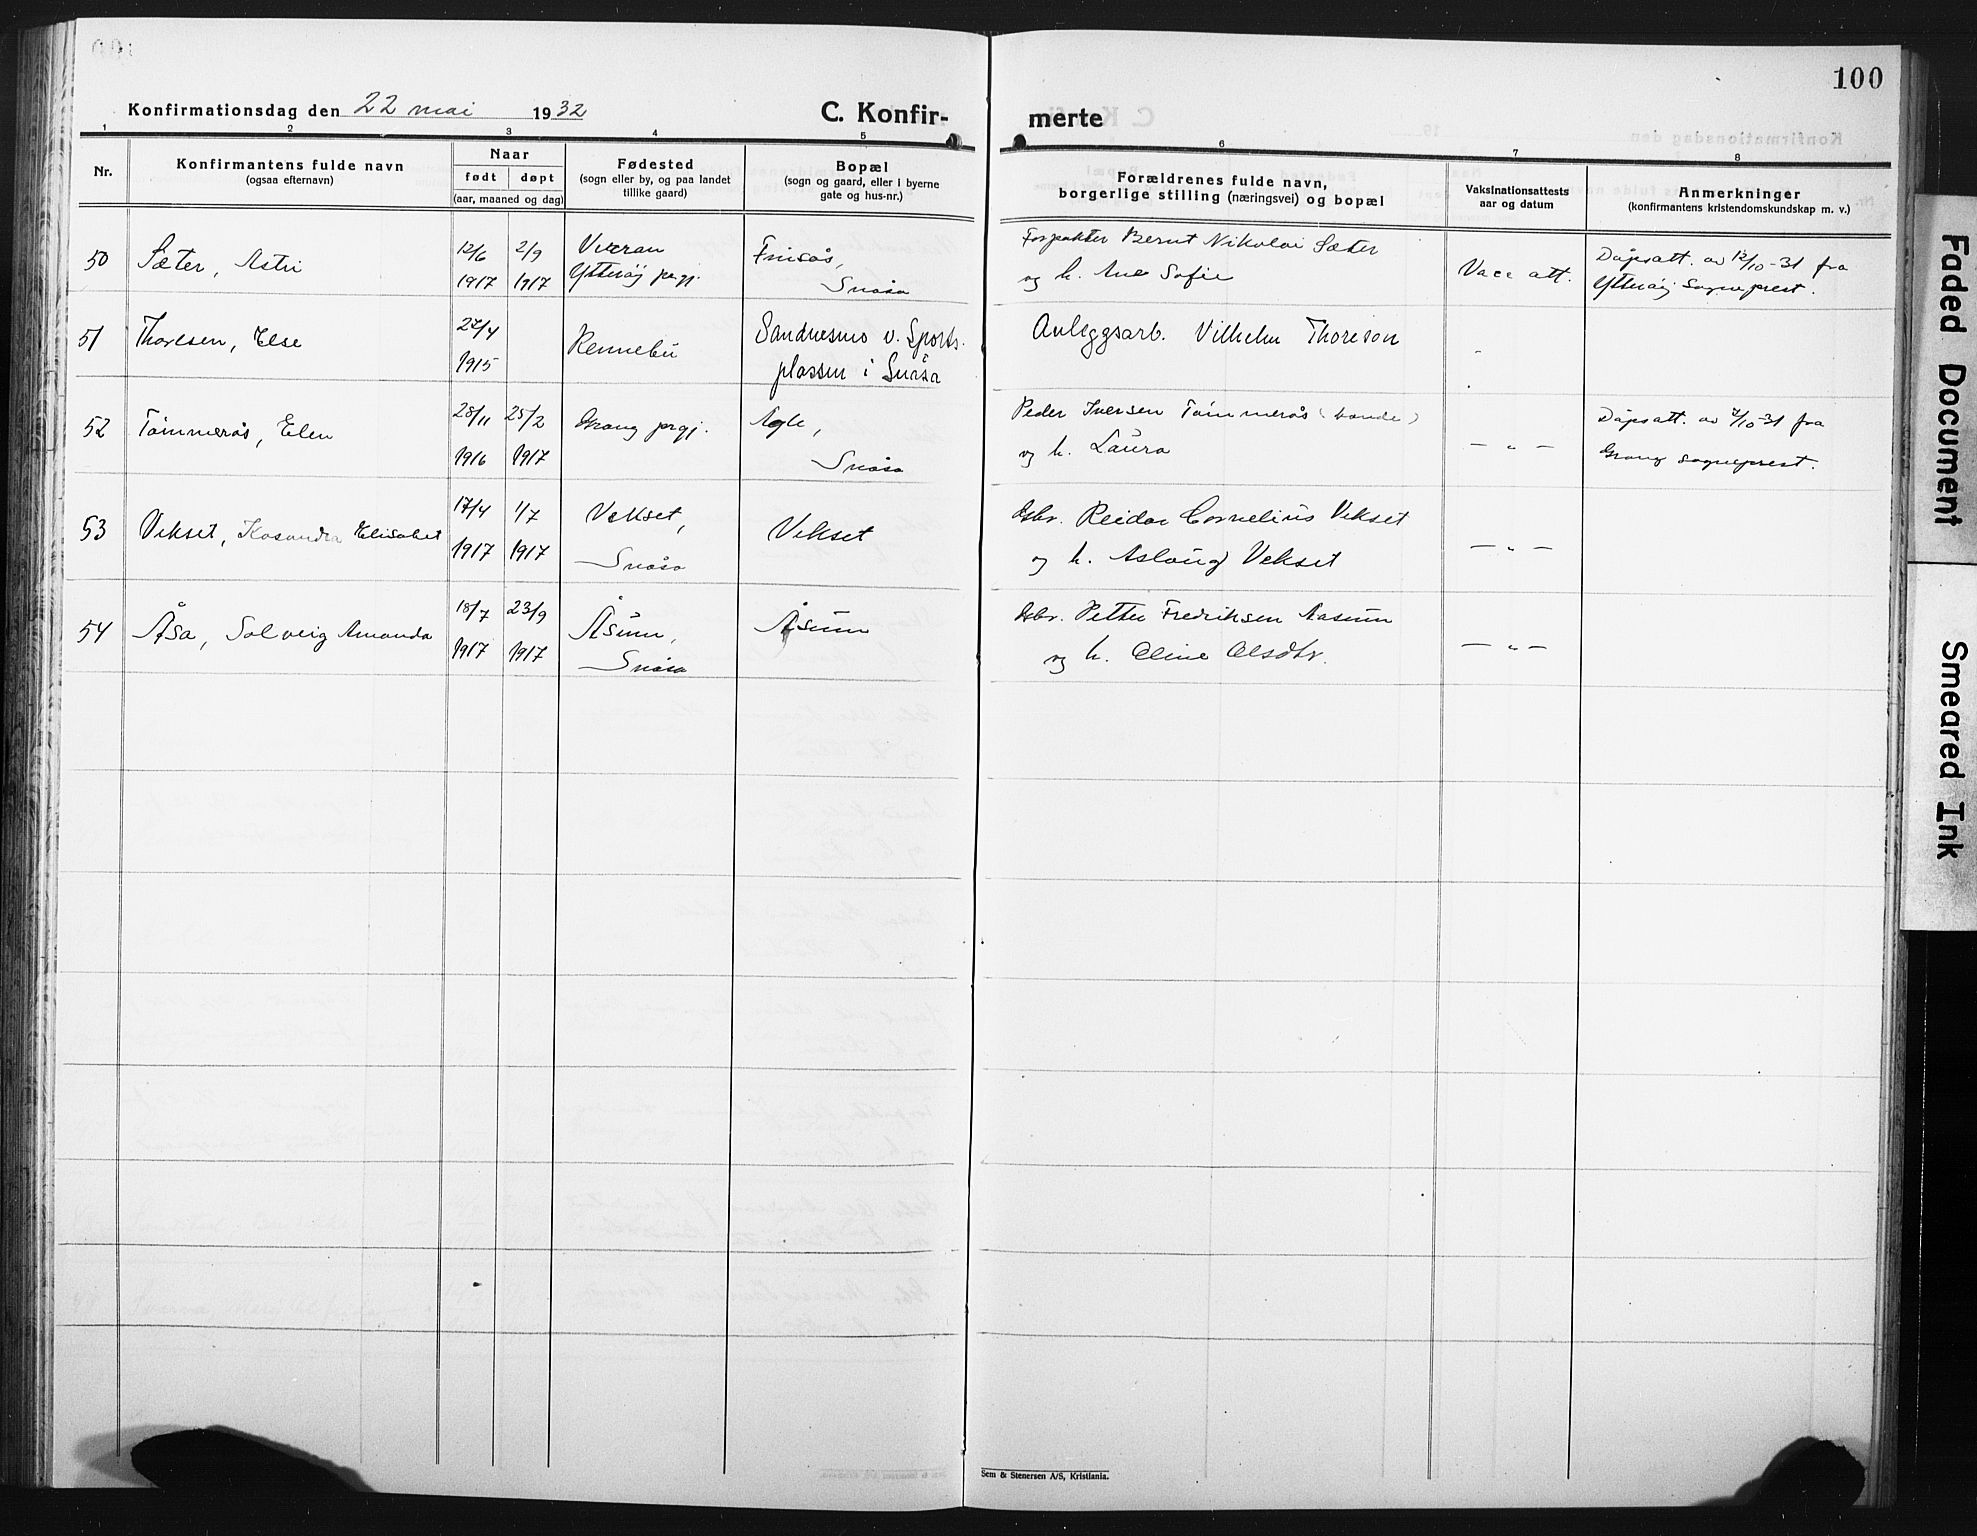 100
Konfirmationsdag den 22 mai 1932
C. Konfir-
merte
1 2 3 4 5 6 7 8
Nr.
Konfirmantens fulde navn
(ogsaa efternavn)
Naar
født døpt
(aar, maaned og dag)
Fødested
(sogn eller by, og paa landet
tillike gaard)
Bopæl
(sogn og gaard, eller i byerne
gate og hus-nr.)
Forældrenes fulde navn,
borgerlige stilling (næringsvei) og bopæl
Vaksinationsattests
aar og datum
Anmerkninger
(konfirmantens kristendomskundskap m. v.)
50
Sæter, Astri
12/6 2/9
1917 1917
Verran
Ytterøy prgj.
Finsås,
Snåsa
Forpakter Bernt Nikolai Sæter
og h. Ane Sofie
Vacc att.
Dåpsatt. av 12/10-31 fra
Ytterøy Sogneprest.
51
Thoresen, Else
27/4
1915
Rennebu
Sandnesmo v. Sports-
plassen i Snåsa
Anleggsarb. Vilhelm Thoreson
52
Tømmerås, Elen
28/11 25/2
1916 1917
Grong prgj.
Agle,
Snåsa
Peder Iversen Tømmerås (bonde)
og h. Laura
— " —
Dåpsatt. av 7/10-31 fra
Grong sogneprest.
53
Vekset, Kasandra Elisabet
17/4 1/7
1917 1917
Vekset,
Snåsa
Vekset
Gbr. Reidar Cornelius Vekset
og h. Aslaug Vekset
— " —
54
Åsa, Solveig Amanda
18/7 23/9
1917 1917
Åsum,
Snåsa
Åsum
Gbr. Petter Fredriksen Aasum
og h. Oline Olsdtr.
— " —
Sem & Stenersen A/S, Kristiania.
Faded Document
Smeared Ink